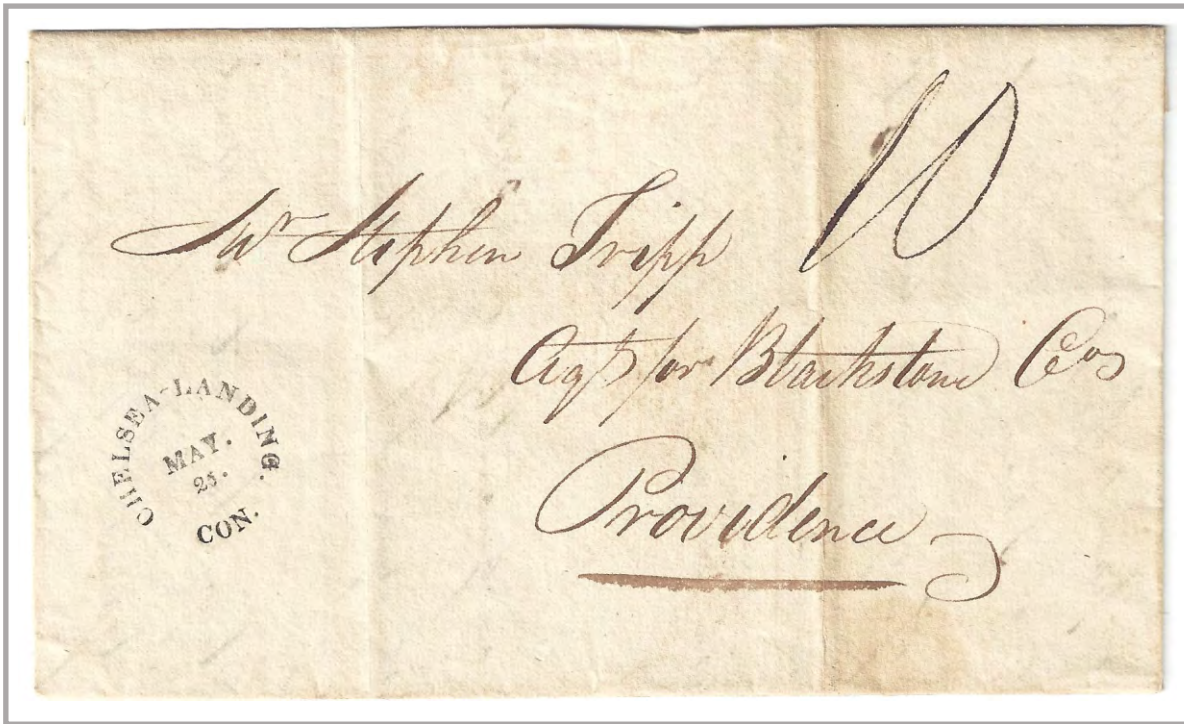 10
Mr Stephen Tripp
Agt for Blackstone Co
Providence
CHELSEA-LANDING.
MAY.
25.
CON.